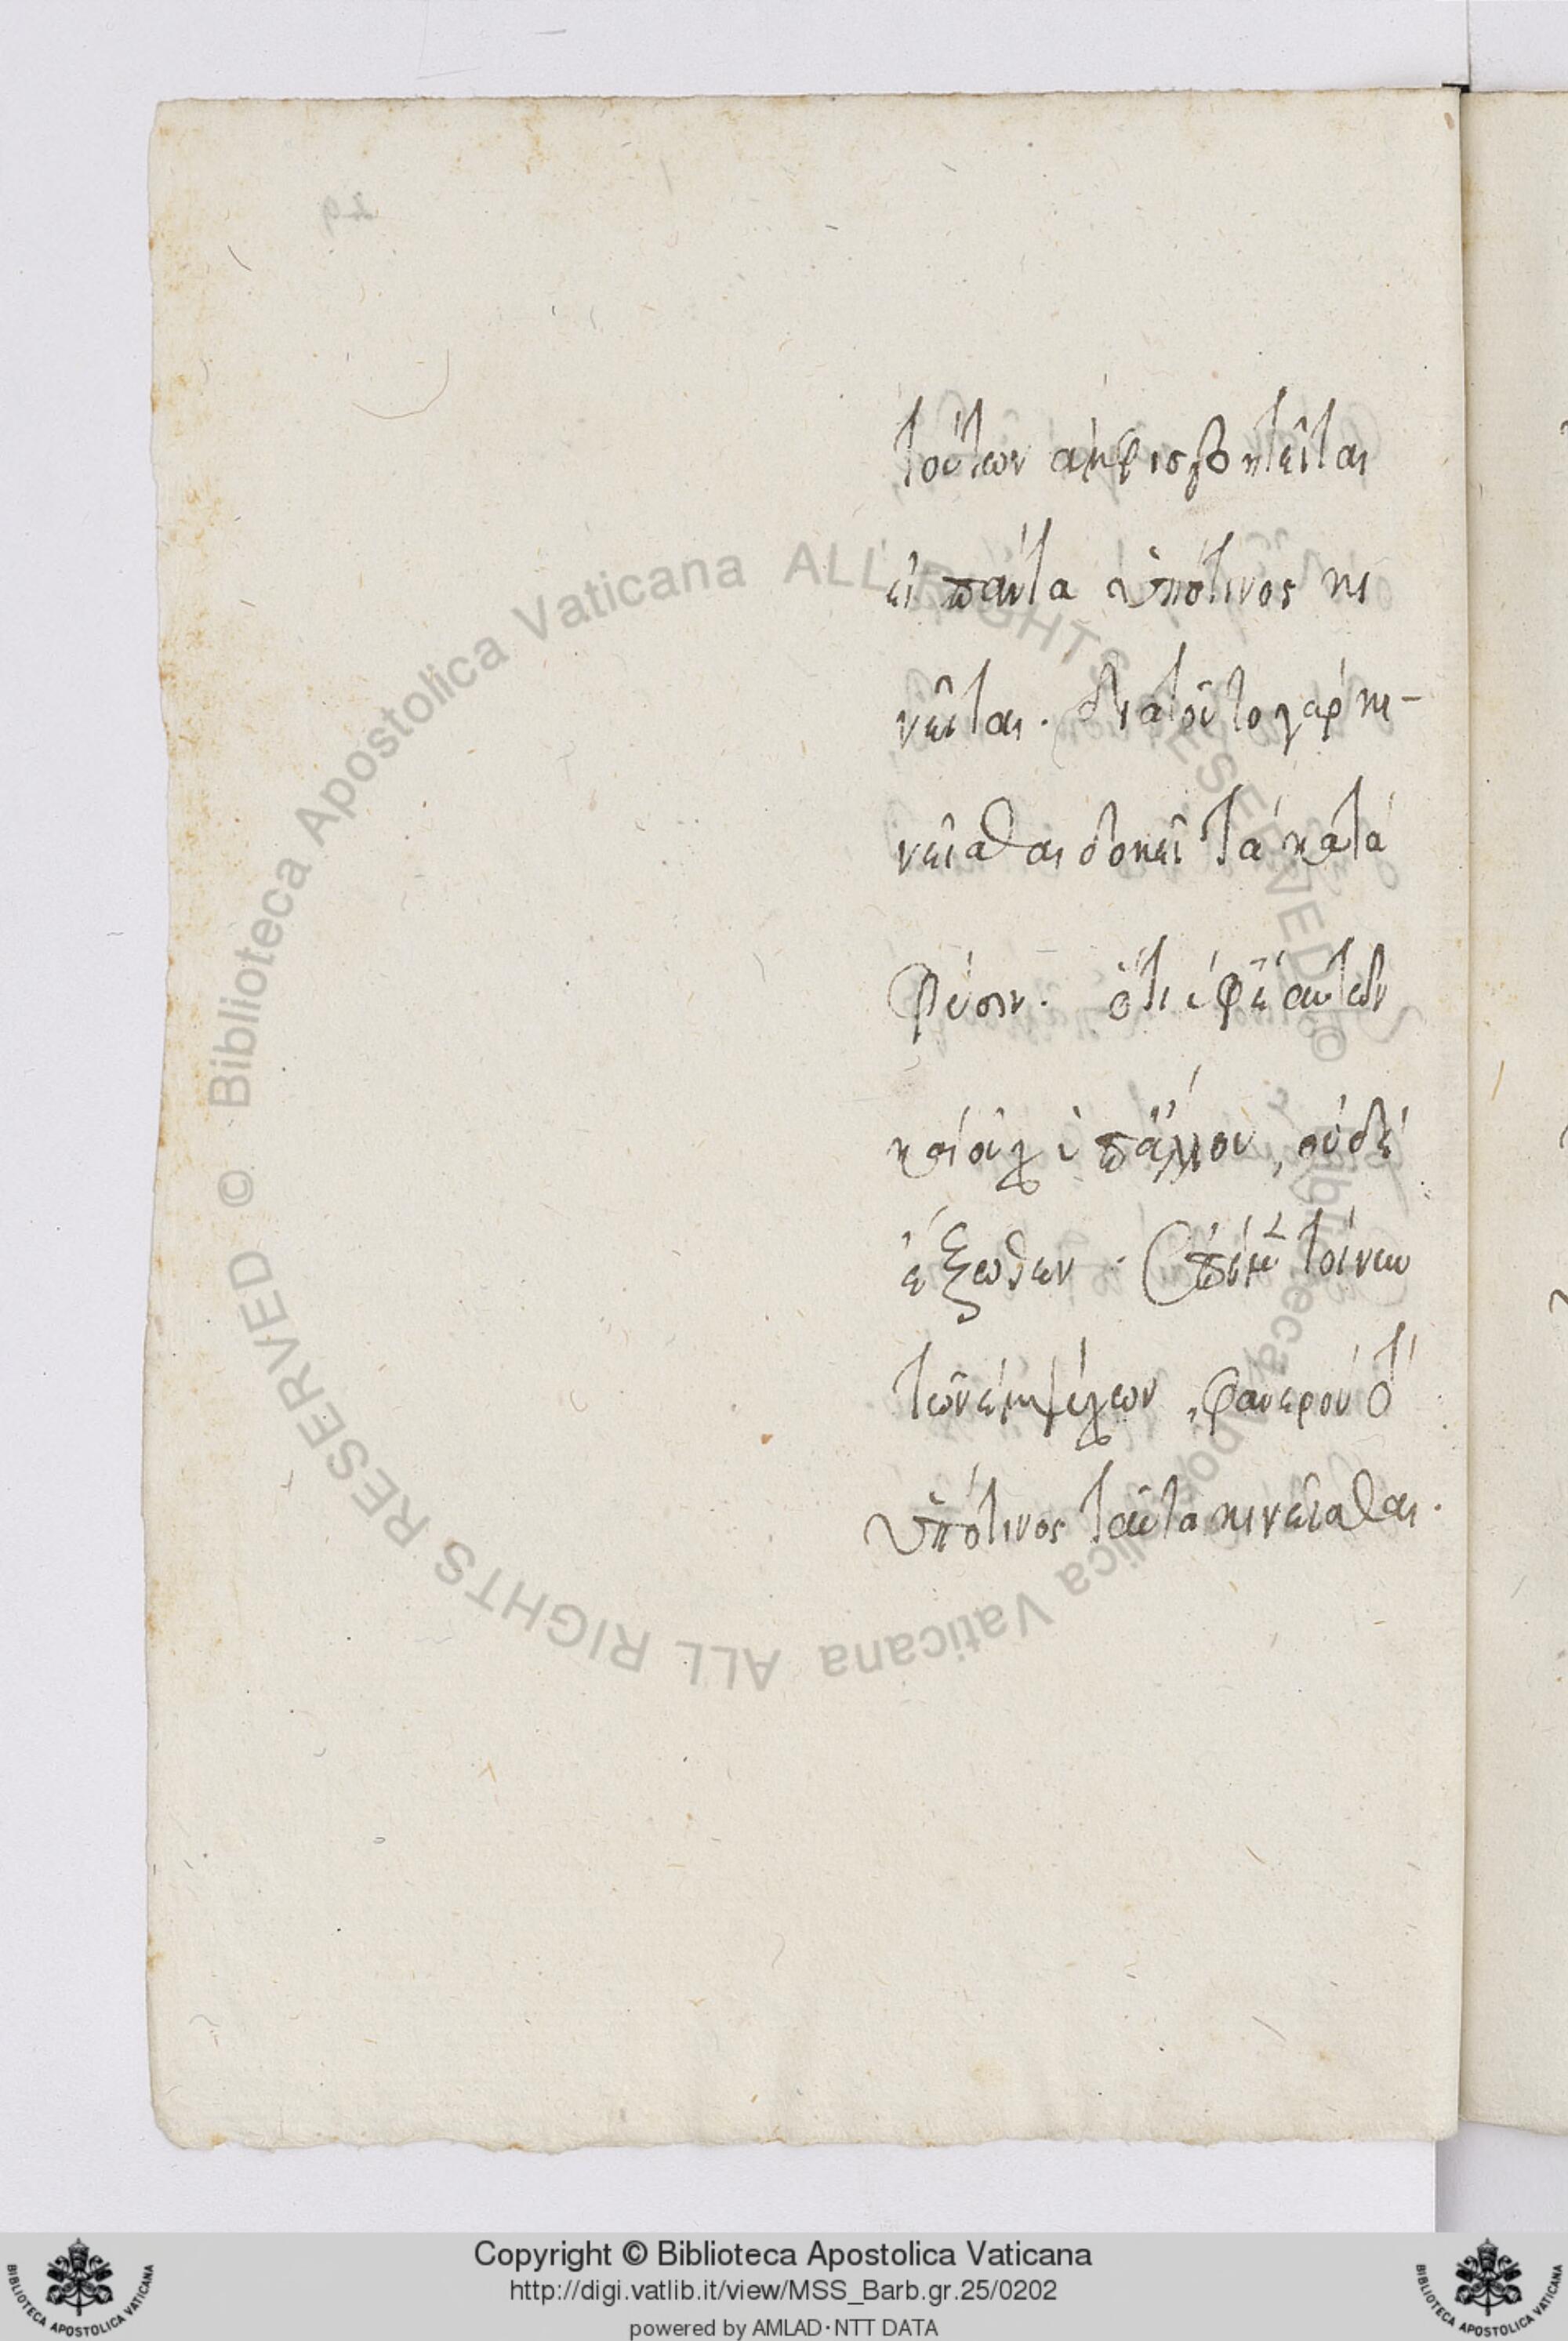 τούτων ἀμφισβητεῖται
εἰ πάντα ὑπότινος κι
νεῖται. διατοῦτο γαρ κι-
νεῖσθαι δοκεῖ τὰ κατὰ
φύσιν. ὅτι
ἔξωθεν. τοίνυν
τῶν ἐμψύχων, φανερὸν ὅτι
ὑπότινος ταῦτα κινεῖσθαι.
© Biblioteca Apostolica Vaticana ALL RIGHTS RESERVED
© Biblioteca Apostolica Vaticana ALL RIGHTS RESERVED
Copyright © Biblioteca Apostolica Vaticana
http://digi.vatlib.it/view/MSS_Barb.gr.25/0202
powered by AMLAD·NTT DATA
BIBLIOTECA APOSTOLICA VATICANA
BIBLIOTECA APOSTOLICA VATICANA